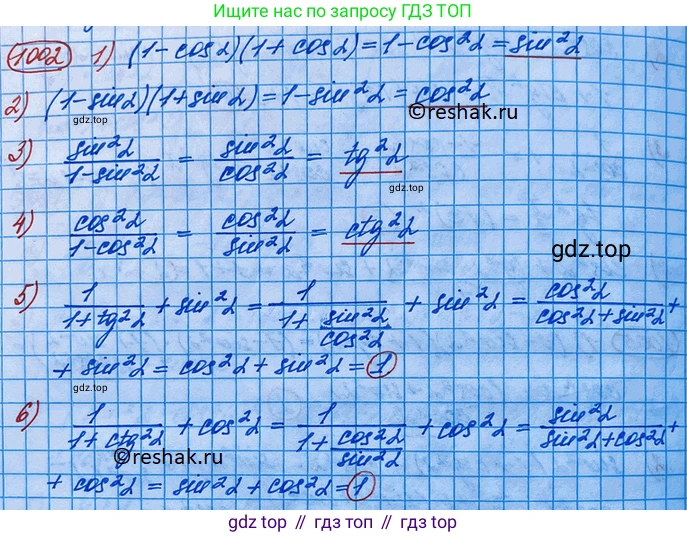 Ищите нас по запросу ГДЗ ТОП
1002 1) (1-cosα)(1+cosα)=1-cos²α=sin²α
2) (1-sinα)(1+sinα)=1-sin²α=cos²α
©reshak.ru
3) sin²α/(1-sin²α) = sin²α/cos²α = tg²α
gdz.top
4) cos²α/(1-cos²α) = cos²α/sin²α = ctg²α
gdz.top
5) 1/(1+tg²α) + sin²α = 1/(1+sin²α/cos²α) + sin²α = cos²α/(cos²α+sin²α) +
+ sin²α = cos²α + sin²α = 1
gdz.top
6) 1/(1+ctg²α) + cos²α = 1/(1+cos²α/sin²α) + cos²α = sin²α/(sin²α+cos²α) +
©reshak.ru
+ cos²α = sin²α + cos²α = 1
gdz top // гдз топ // gdz.top